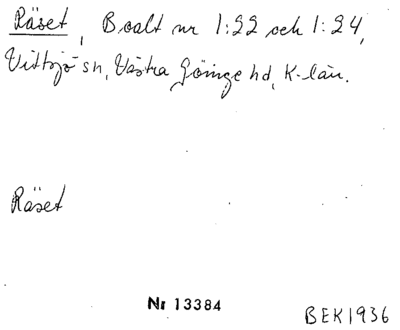 Räset, Boalt nr 1:22 och 1:24,
Vittsjö sn, Västra Göinge hd, K-län.
Räset
Nr 13384
BEK1936